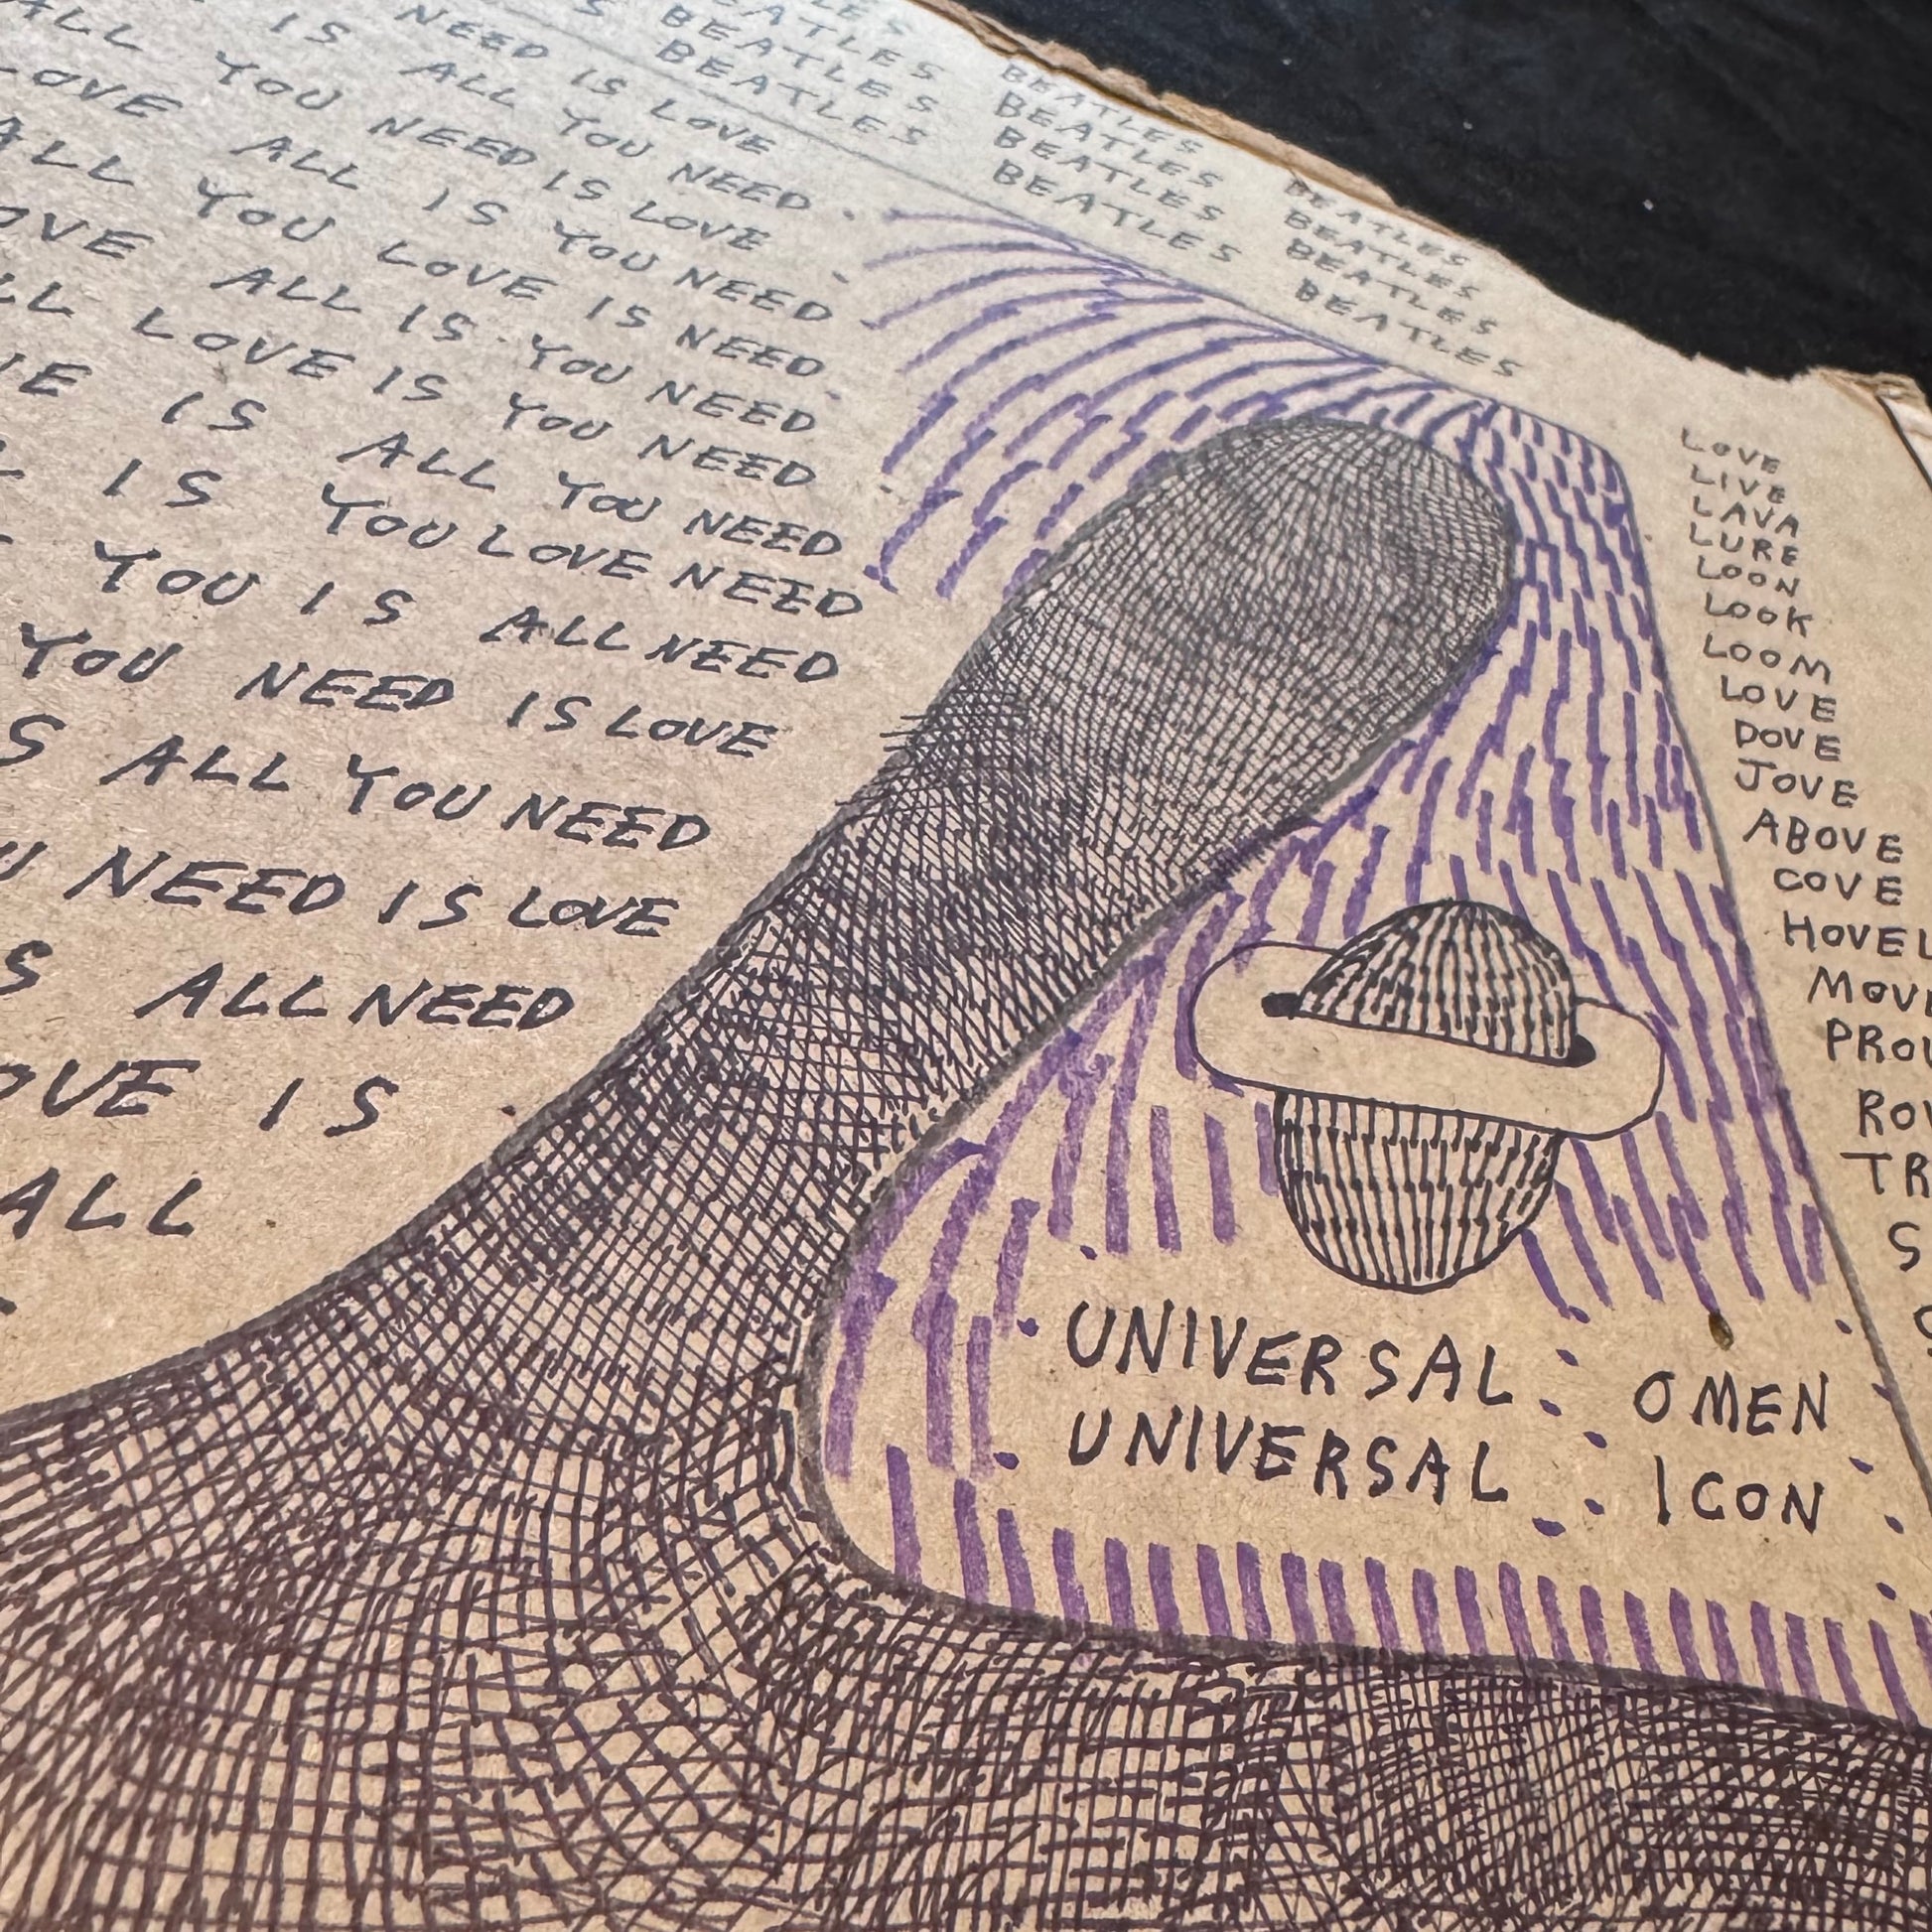 BEATLES
BEATLES
BEATLES
BEATLES
BEATLES
BEATLES
BEATLES
BEATLES
BEATLES
BEATLES
NEED IS LOVE
IS ALL YOU NEED
ALL YOU NEED IS LOVE
LOVE ALL IS YOU NEED
ALL YOU LOVE IS NEED
OVE ALL IS YOU NEED
LL LOVE IS YOU NEED
IS ALL YOU NEED
IS YOU LOVE NEED
YOU IS ALL NEED
YOU NEED IS LOVE
S ALL YOU NEED
U NEED IS LOVE
S ALL NEED
OVE IS
ALL
LOVE
LIVE
LAVA
LURE
LOON
LOOK
LOOM
LOVE
DOVE
JOVE
ABOVE
COVE
HOVEL
MOV
PRO
RO
TR
S
UNIVERSAL : OMEN
UNIVERSAL : ICON